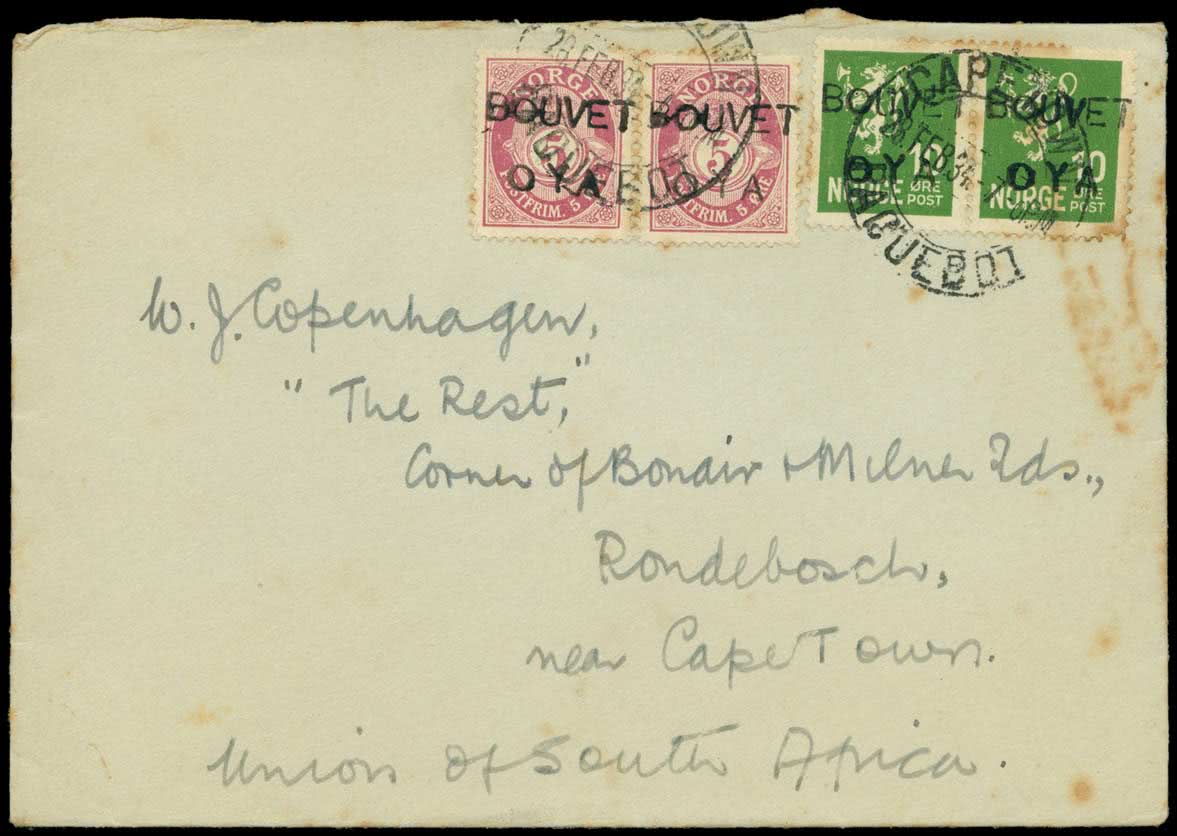 NORGE NORGE
BOUVET BOUVET BOUVET BOUVET
5 5 10 10
OYA OYA OYA OYA
POSTFRIM. 5 ØRE POSTFRIM. 5 ØRE NORGE ØRE POST NORGE ØRE POST
28.FEB.34
CAPE TOWN
28.FEB.34
PAQUEBOT
PAQUEBOT
W. J. Copenhagen,
"The Rest,"
Corner of Bonair & Milner Rds.,
Rondebosch,
near Cape Town.
Union of South Africa.